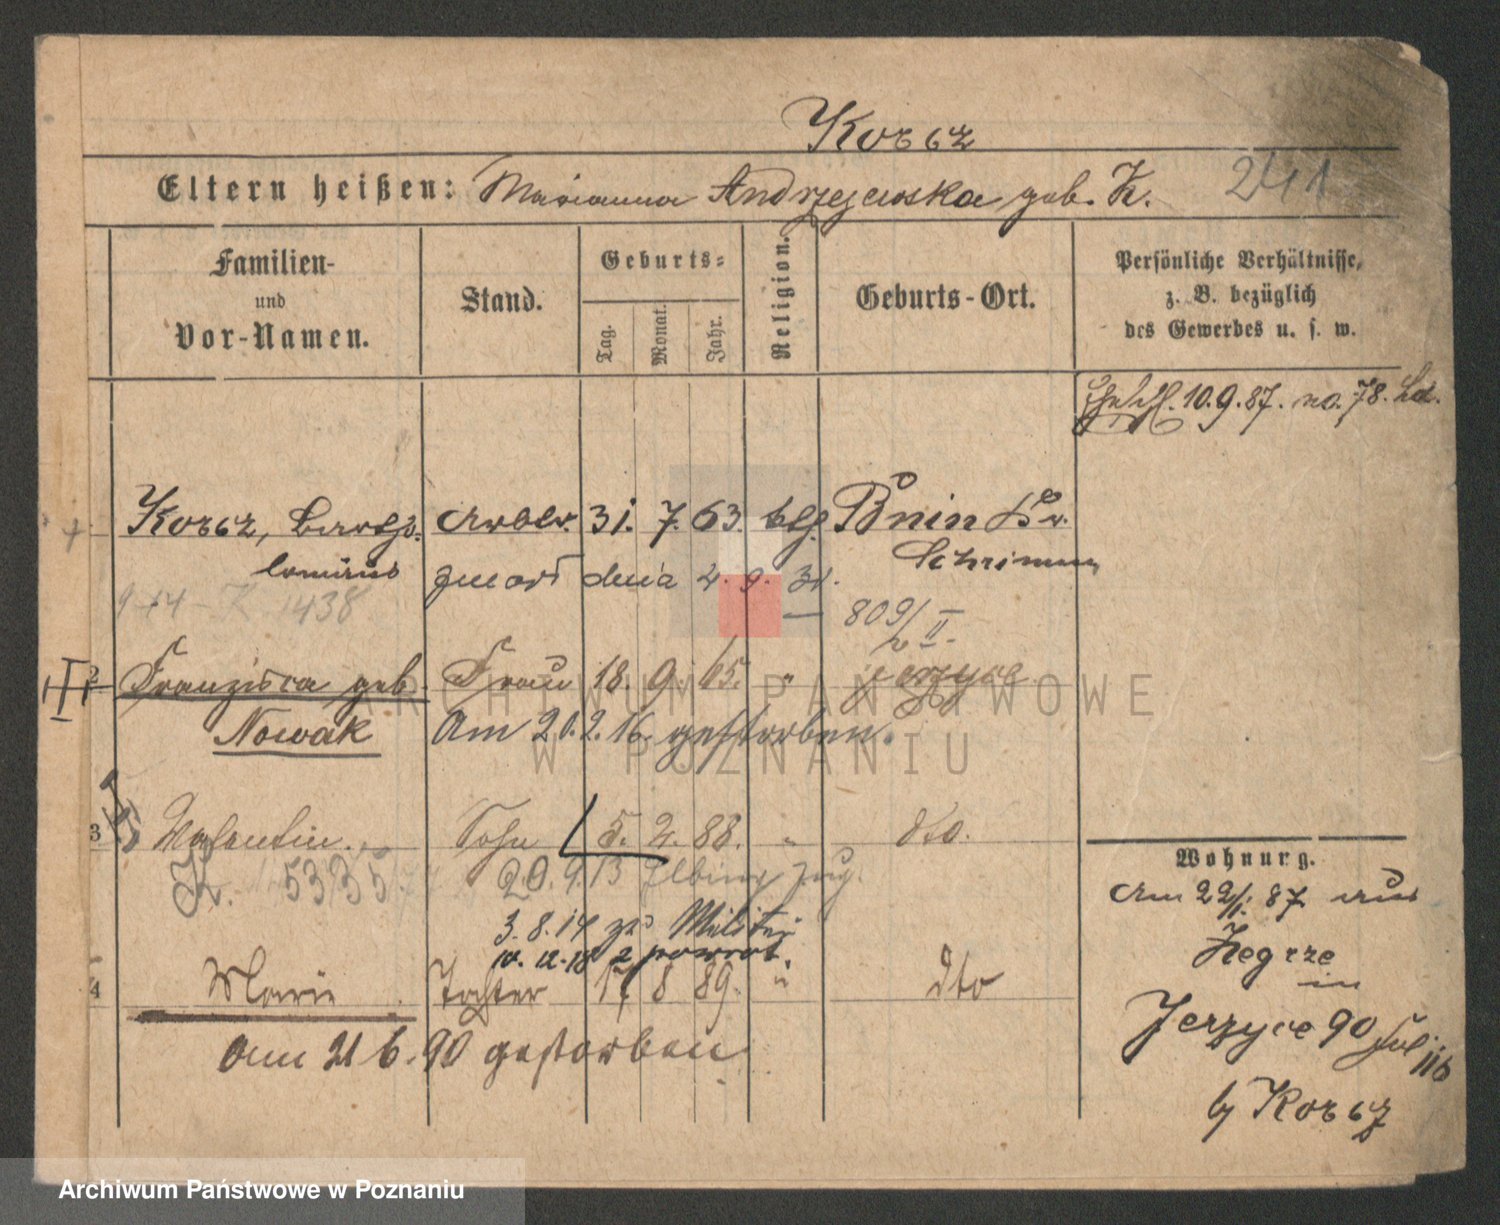 Korcz
Eltern heißen: Marianna Andrzejewska geb. K. 241
Familien- und Vor-Namen.
Stand.
Geburts-
Tag. Monat. Jahr.
Religion.
Geburts-Ort.
Persönliche Verhältnisse, z. B. bezüglich des Gewerbes u. s. w.
10.9.87. no. 78.
Korcz, Bartho- Arbtr. 31. 7. 63. ktl. Bnin Kr.
lomäus zmarł dnia 2. 9. 31. Schrimm
K 1438 809/II
2 Franziska geb. Frau 18. 9. 65. " Jerzyce
Nowak Am 20.2.16. gestorben.
3 Valentin. Sohn 5. 2. 88. " dto.
K. 5335 20.9.13 Elbing zug.
3.8.14 zu Militär
10.12.18 z powrot.
4 Marie Tochter 17 8 89. " dto
Am 21 6. 90 gestorben
Wohnung.
Am 22/1. 87 aus
Zegrze
in
Jerzyce 90
116
by Korcz
ARCHIWUM PAŃSTWOWE
W POZNANIU
Archiwum Państwowe w Poznaniu